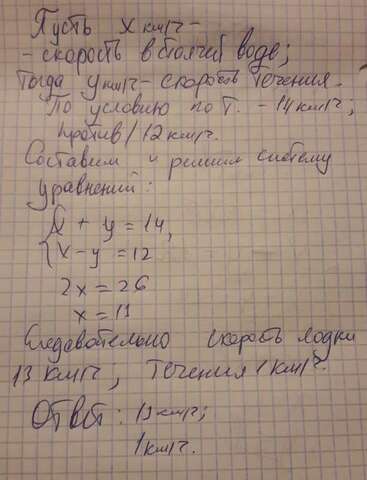 Пусть x км/ч -
- скорость в стоячей воде;
Тогда y км/ч - скорость течения.
По условию по т. - 14 км/ч;
против / 12 км/ч.
Составим и решим систему
уравнений:
{x + y = 14,
x - y = 12
2x = 26
x = 13
Следовательно скорость лодки
13 км/ч; течения 1 км/ч.
Ответ: 13 км/ч;
1 км/ч.